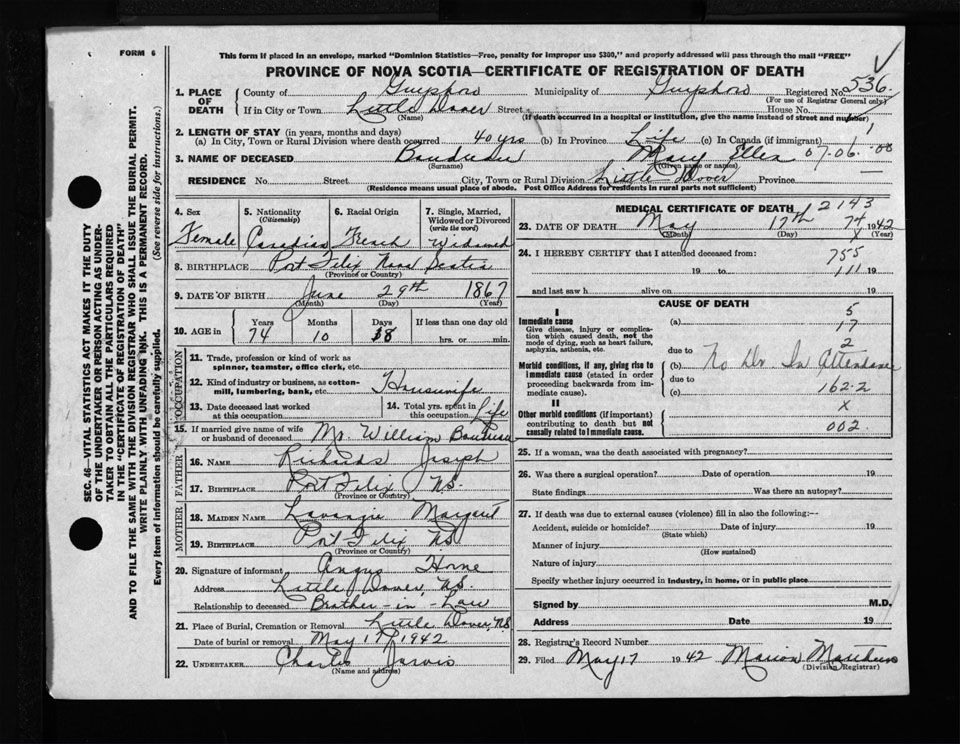 FORM 6
This form if placed in an envelope, marked "Dominion Statistics—Free, penalty for improper use $300," and properly addressed will pass through the mail "FREE"
PROVINCE OF NOVA SCOTIA—CERTIFICATE OF REGISTRATION OF DEATH
SEC. 46—VITAL STATISTICS ACT MAKES IT THE DUTY
OF THE UNDERTAKER OR PERSON ACTING AS UNDER-
TAKER TO OBTAIN ALL THE PARTICULARS REQUIRED
IN THE "CERTIFICATE OF REGISTRATION OF DEATH"
AND TO FILE THE SAME WITH THE DIVISION REGISTRAR WHO SHALL ISSUE THE BURIAL PERMIT.
WRITE PLAINLY WITH UNFADING INK. THIS IS A PERMANENT RECORD.
Every item of information should be carefully supplied. (See reverse side for instructions.)
1. PLACE OF DEATH County of Guysboro Municipality of Guysboro Registered No. 536
(For use of Registrar General only)
If in City or Town Little Dover Street House No.
(Name) (If death occurred in a hospital or institution, give the name instead of street and number)
2. LENGTH OF STAY (in years, months and days)
(a) In City, Town or Rural Division where death occurred 40 yrs (b) In Province Life (c) In Canada (if immigrant)
3. NAME OF DECEASED Boudreau Mary Ellen 07-06-00
(Surname) (Given name or names)
RESIDENCE No. Street City, Town or Rural Division Little Dover Province
(Residence means usual place of abode. Post Office Address for residents in rural parts not sufficient)
4. Sex
Female
5. Nationality
(Citizenship)
Canadian
6. Racial Origin
French
7. Single, Married,
Widowed or Divorced
(write the word)
Widowed
8. BIRTHPLACE Port Felix Nova Scotia
(Province or Country)
9. DATE OF BIRTH June 29th 1867
(Month) (Day) (Year)
10. AGE in Years Months Days If less than one day old
74 10 18 hrs. or min.
OCCUPATION
11. Trade, profession or kind of work as
spinner, teamster, office clerk, etc.
12. Kind of industry or business, as cotton-
mill, lumbering, bank, etc. Housewife
13. Date deceased last worked
at this occupation
14. Total yrs. spent in
this occupation Life
15. If married give name of wife
or husband of deceased Mr. William Boudreau
FATHER
16. NAME Richards Joseph
17. BIRTHPLACE Port Felix N.S.
(Province or Country)
MOTHER
18. MAIDEN NAME Margaret
19. BIRTHPLACE Port Felix N.S.
(Province or Country)
20. Signature of informant Angus Horne
Address Little Dover, N.S.
Relationship to deceased Brother-in-Law
21. Place of Burial, Cremation or Removal Little Dover, N.S.
Date of burial or removal May 17, 1942
22. UNDERTAKER Charles Jarvis
(Name and address)
MEDICAL CERTIFICATE OF DEATH 2143
23. DATE OF DEATH May 17th 74 1942
(Month) (Day) (Year)
24. I HEREBY CERTIFY that I attended deceased from: 755
19 to 111 19
and last saw h alive on 19
CAUSE OF DEATH
I
Immediate cause
Give disease, injury or complica-
tion which caused death, not the
mode of dying, such as heart failure,
asphyxia, asthenia, etc.
(a) 5
17
due to 2
Morbid conditions, if any, giving rise to
immediate cause (stated in order
proceeding backwards from im-
mediate cause).
(b) No Dr. In Attendance
due to
(c) 162-2
II
Other morbid conditions (if important)
contributing to death but not
causally related to immediate cause.
X
002
25. If a woman, was the death associated with pregnancy?
26. Was there a surgical operation? Date of operation 19
State findings Was there an autopsy?
27. If death was due to external causes (violence) fill in also the following:—
Accident, suicide or homicide? Date of injury 19
(State which)
Manner of injury
(How sustained)
Nature of injury
Specify whether injury occurred in industry, in home, or in public place
Signed by M.D.
Address Date 19
28. Registrar's Record Number
29. Filed May 17 1942 Marion Matthews
(Division Registrar)